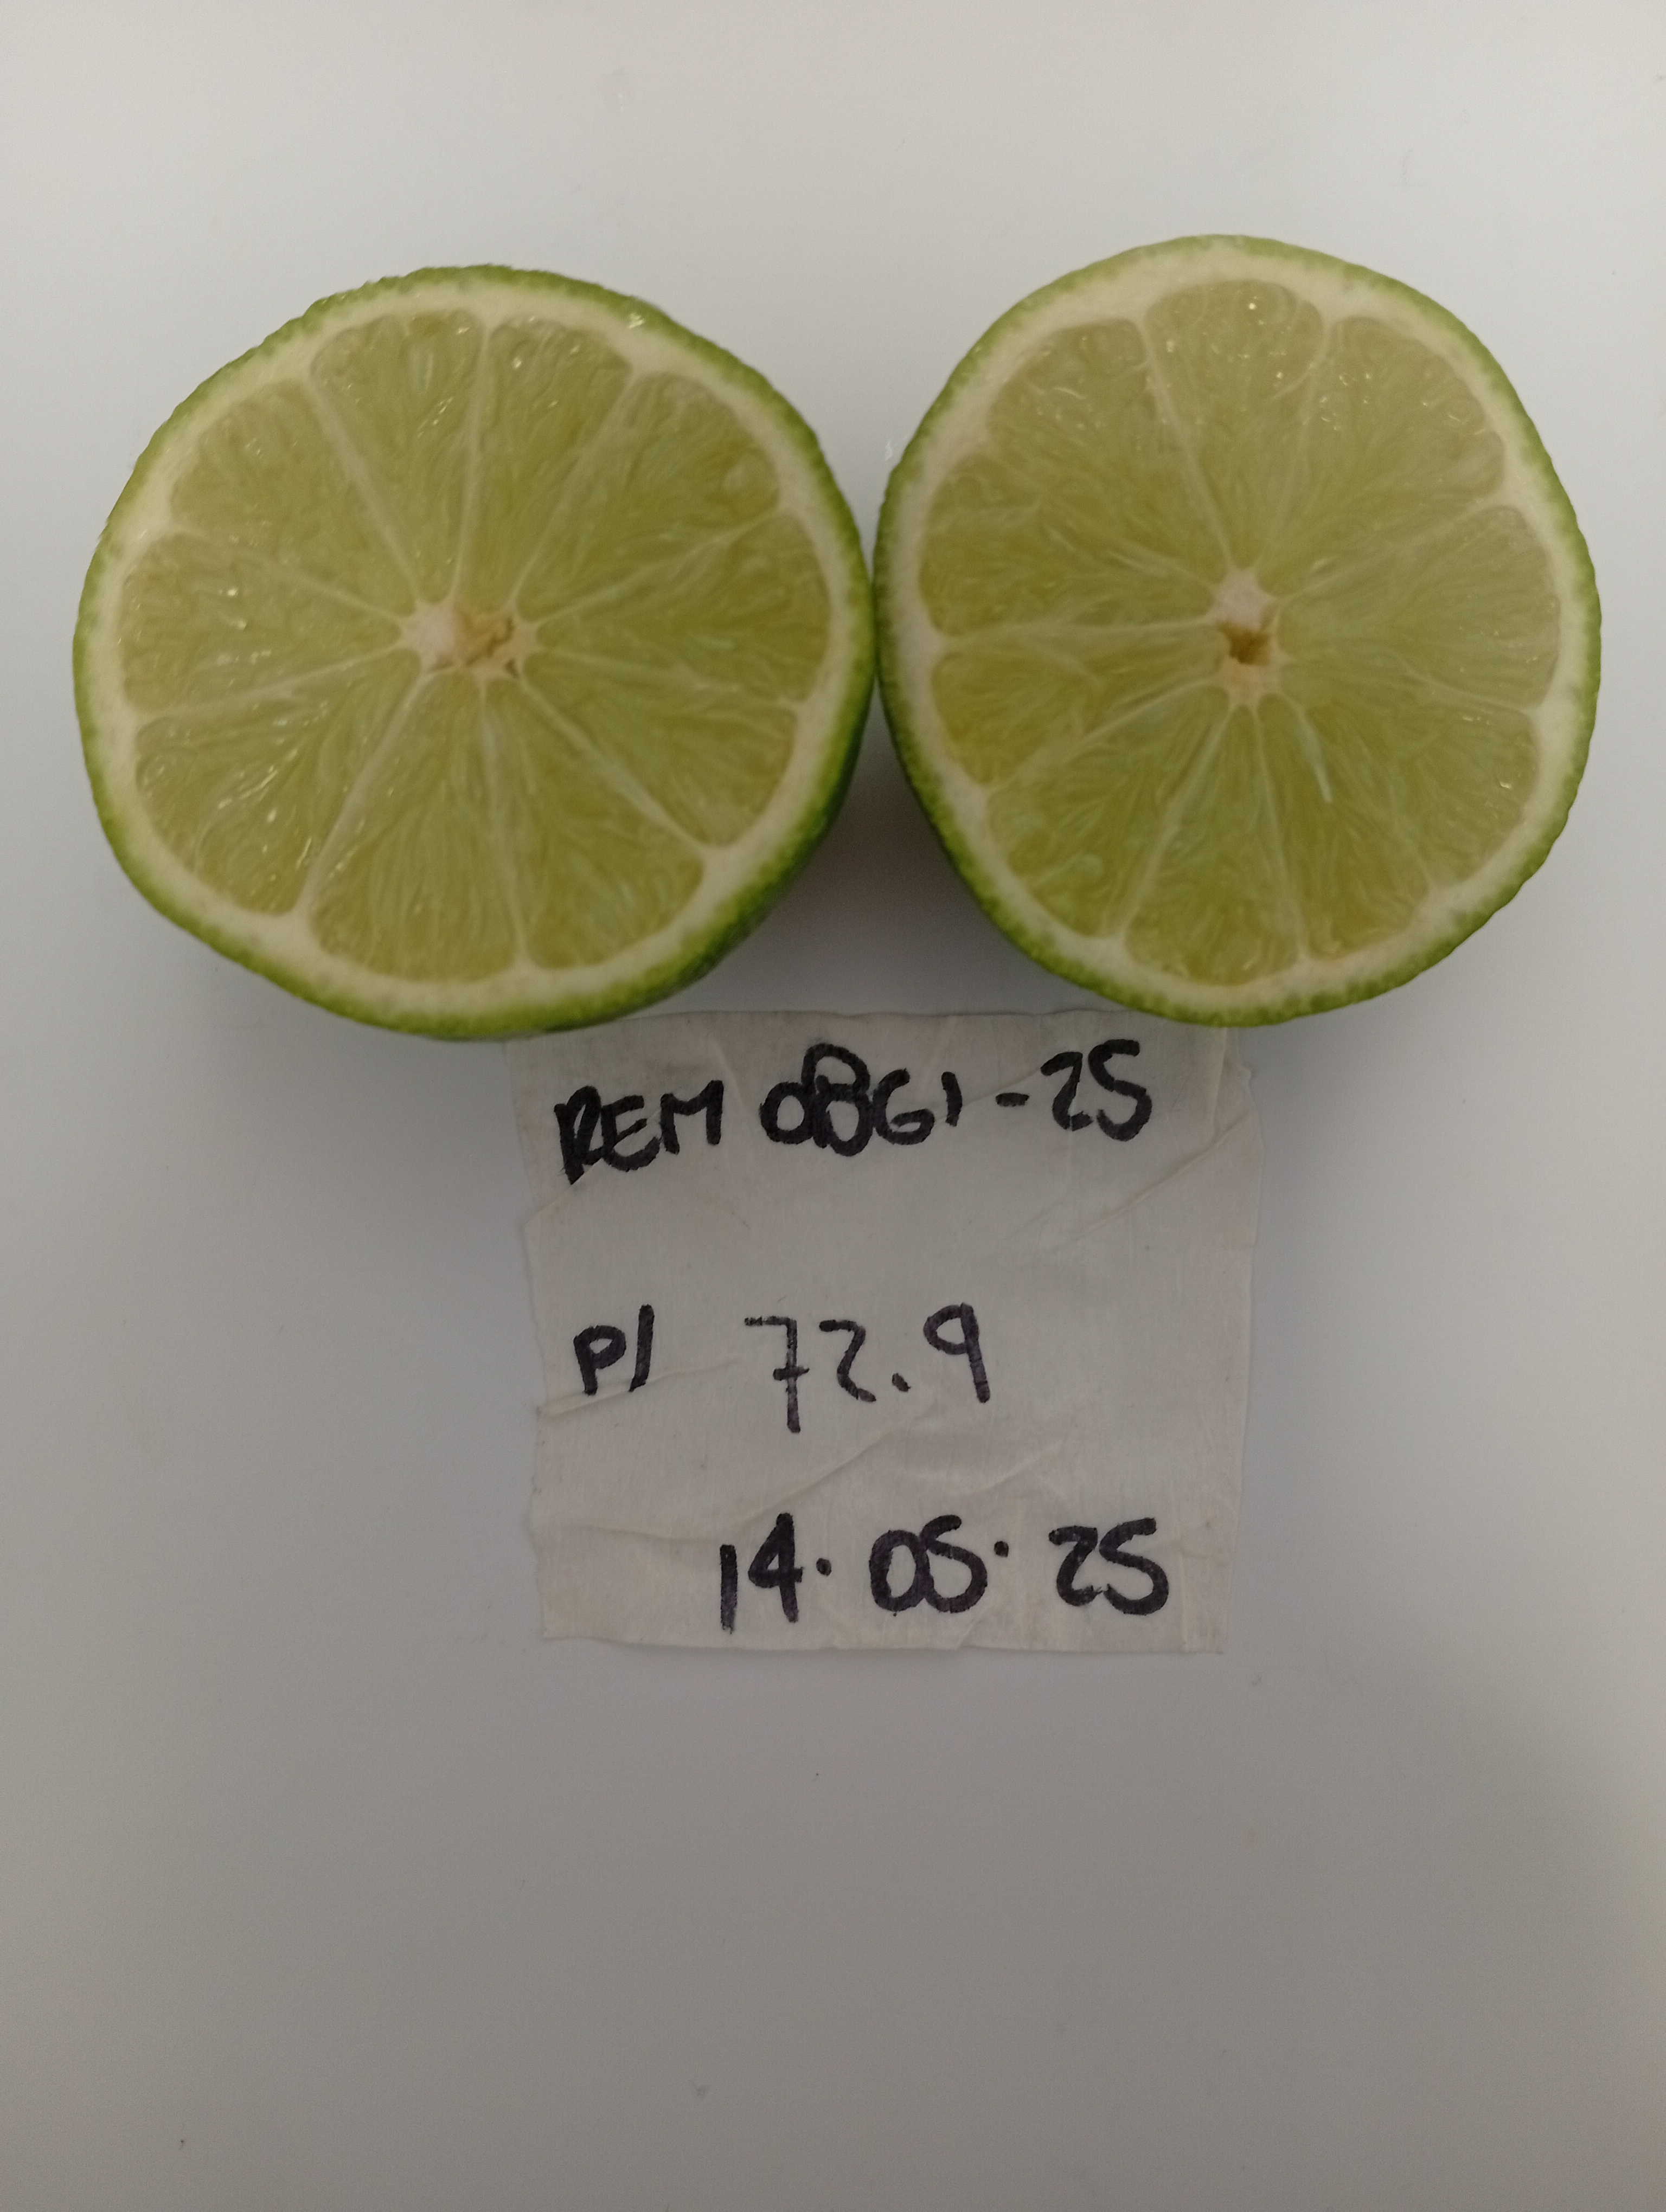 REM 0861-25
P/ 72.9
14.05.25